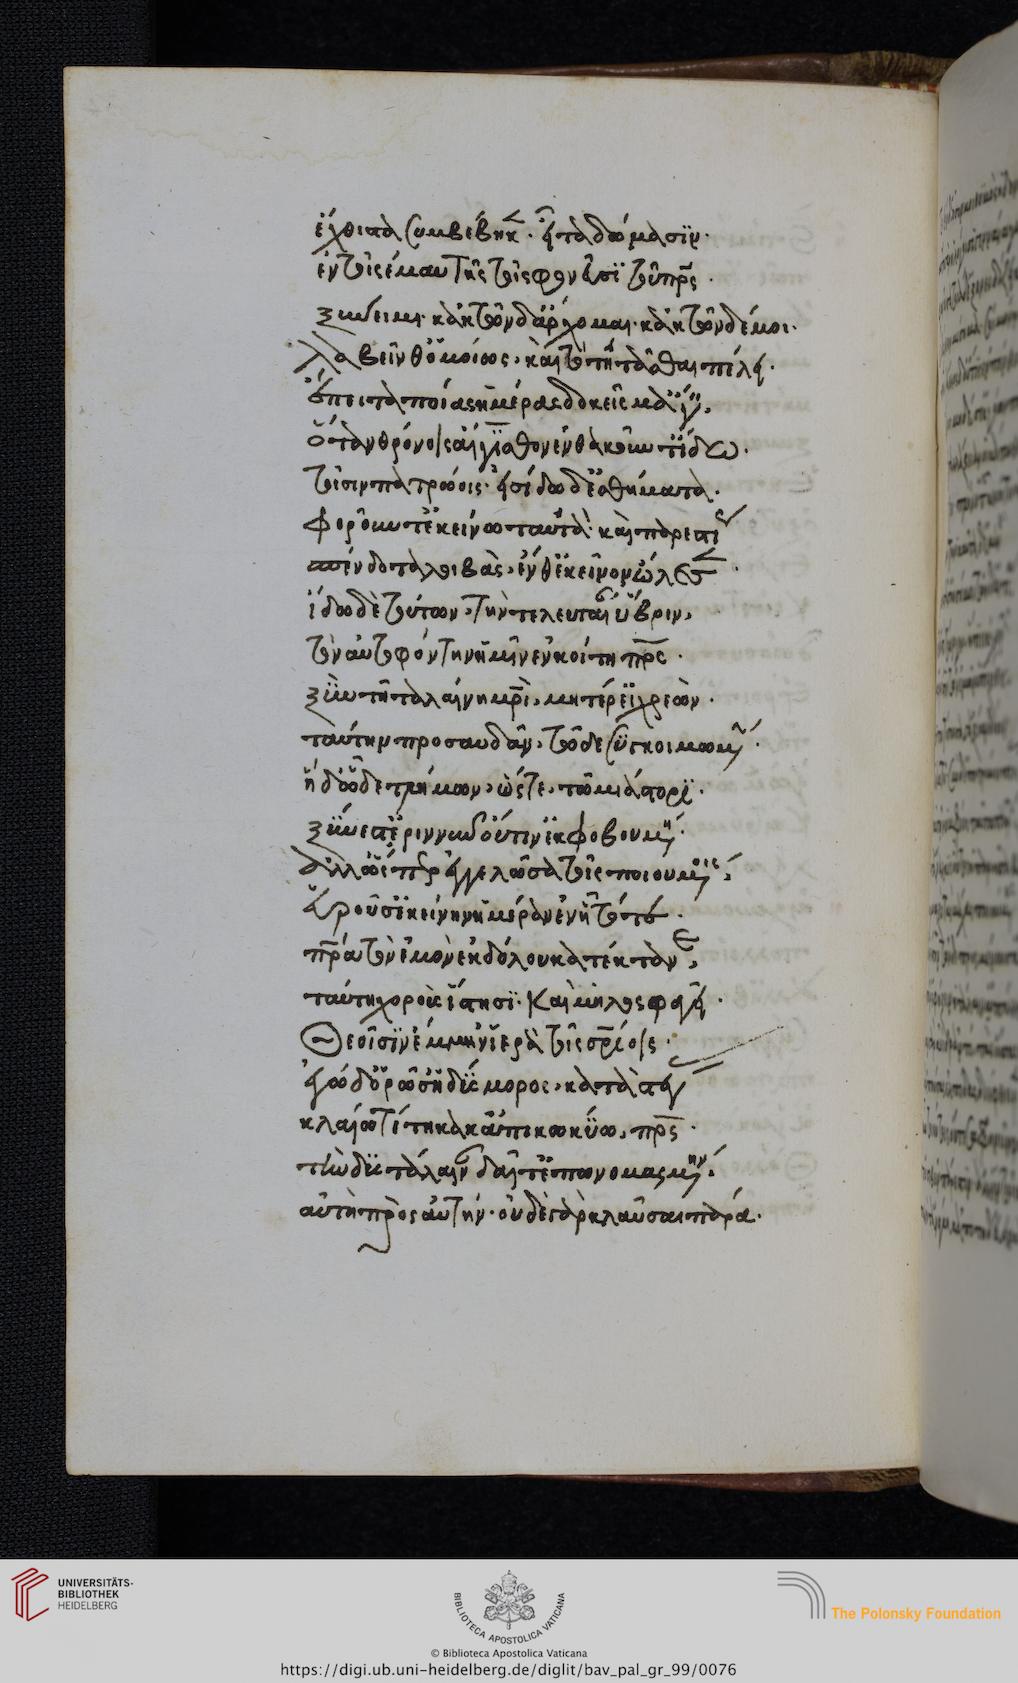 ἔχθιστα συμβέβηκεν· εἶτα δώμασιν·
ἐν τοῖς ἐμαυτῆς τοῖς φονεῦσι τοῦ πατρὸς·
ξύνειμι· κἀκ τῶνδ' ἄρχομαι· κἀκ τῶνδέ μοι·
λαβεῖν θ' ὁμοίως, καὶ τὸ τητᾶσθαι πέλει·
ἔπειτα ποίας ἡμέρας δοκεῖς μ' ἄγειν,
ὅταν θρόνοις αἴγισθον ἐνθακοῦντ' ἴδω·
τοῖσιν πατρώοις· εἰσίδω δ' ἐσθήματα·
φοροῦντ' ἐκείνω ταὐτά· καὶ παρεστίους
σπένδοντα λοιβὰς, ἔνθ' ἐκεῖνον ὤλεσεν·
ἴδω δὲ τούτων, τὴν τελευταίαν ὕβριν,
τὸν αὐτοφόντην ἡμὶν ἐν κοίτη πατρὸς·
ξὺν τῆ ταλαίνη μητρὶ, μητέρ' εἰ χρεὼν·
ταύτην προσαυδᾶν, τῶδε συγκοιμωμένην·
ἡ δ' ὧδε τλήμων, ὥστε, τῶ μιάστορι·
ξύνεστ' ἐριννὺν οὔτιν' ἐκφοβουμένη·
ἀλλ' ὥσπερ ἐγγελῶσα τοῖς ποιουμένοις,
εὑροῦσ' ἐκείνην ἡμέραν ἐν ᾗ τότε·
πατέρα τὸν ἐμὸν ἐκ δόλου κατέκτανεν,
ταύτη χοροὺς ἵστησι· καὶ μηλοσφαγεῖ·
Θεοῖσιν ἔμμην' ἱερὰ τοῖς σωτηρίοις·
ἐγὼ δ' ὁρῶσ' ἡ δύσμορος, κατὰ στέγας
κλαίω τέτηκα κἀπικωκύω, πατρὸς·
τὴν δυστάλαιναν δαῖτ' ἐπωνομασμένην·
αὐτὴ πρὸς αὐτήν· οὐδὲ γὰρ κλαῦσαι πάρα·
UNIVERSITÄTS-
BIBLIOTHEK
HEIDELBERG
BIBLIOTECA APOSTOLICA VATICANA
The Polonsky Foundation
© Biblioteca Apostolica Vaticana
https://digi.ub.uni-heidelberg.de/diglit/bav_pal_gr_99/0076